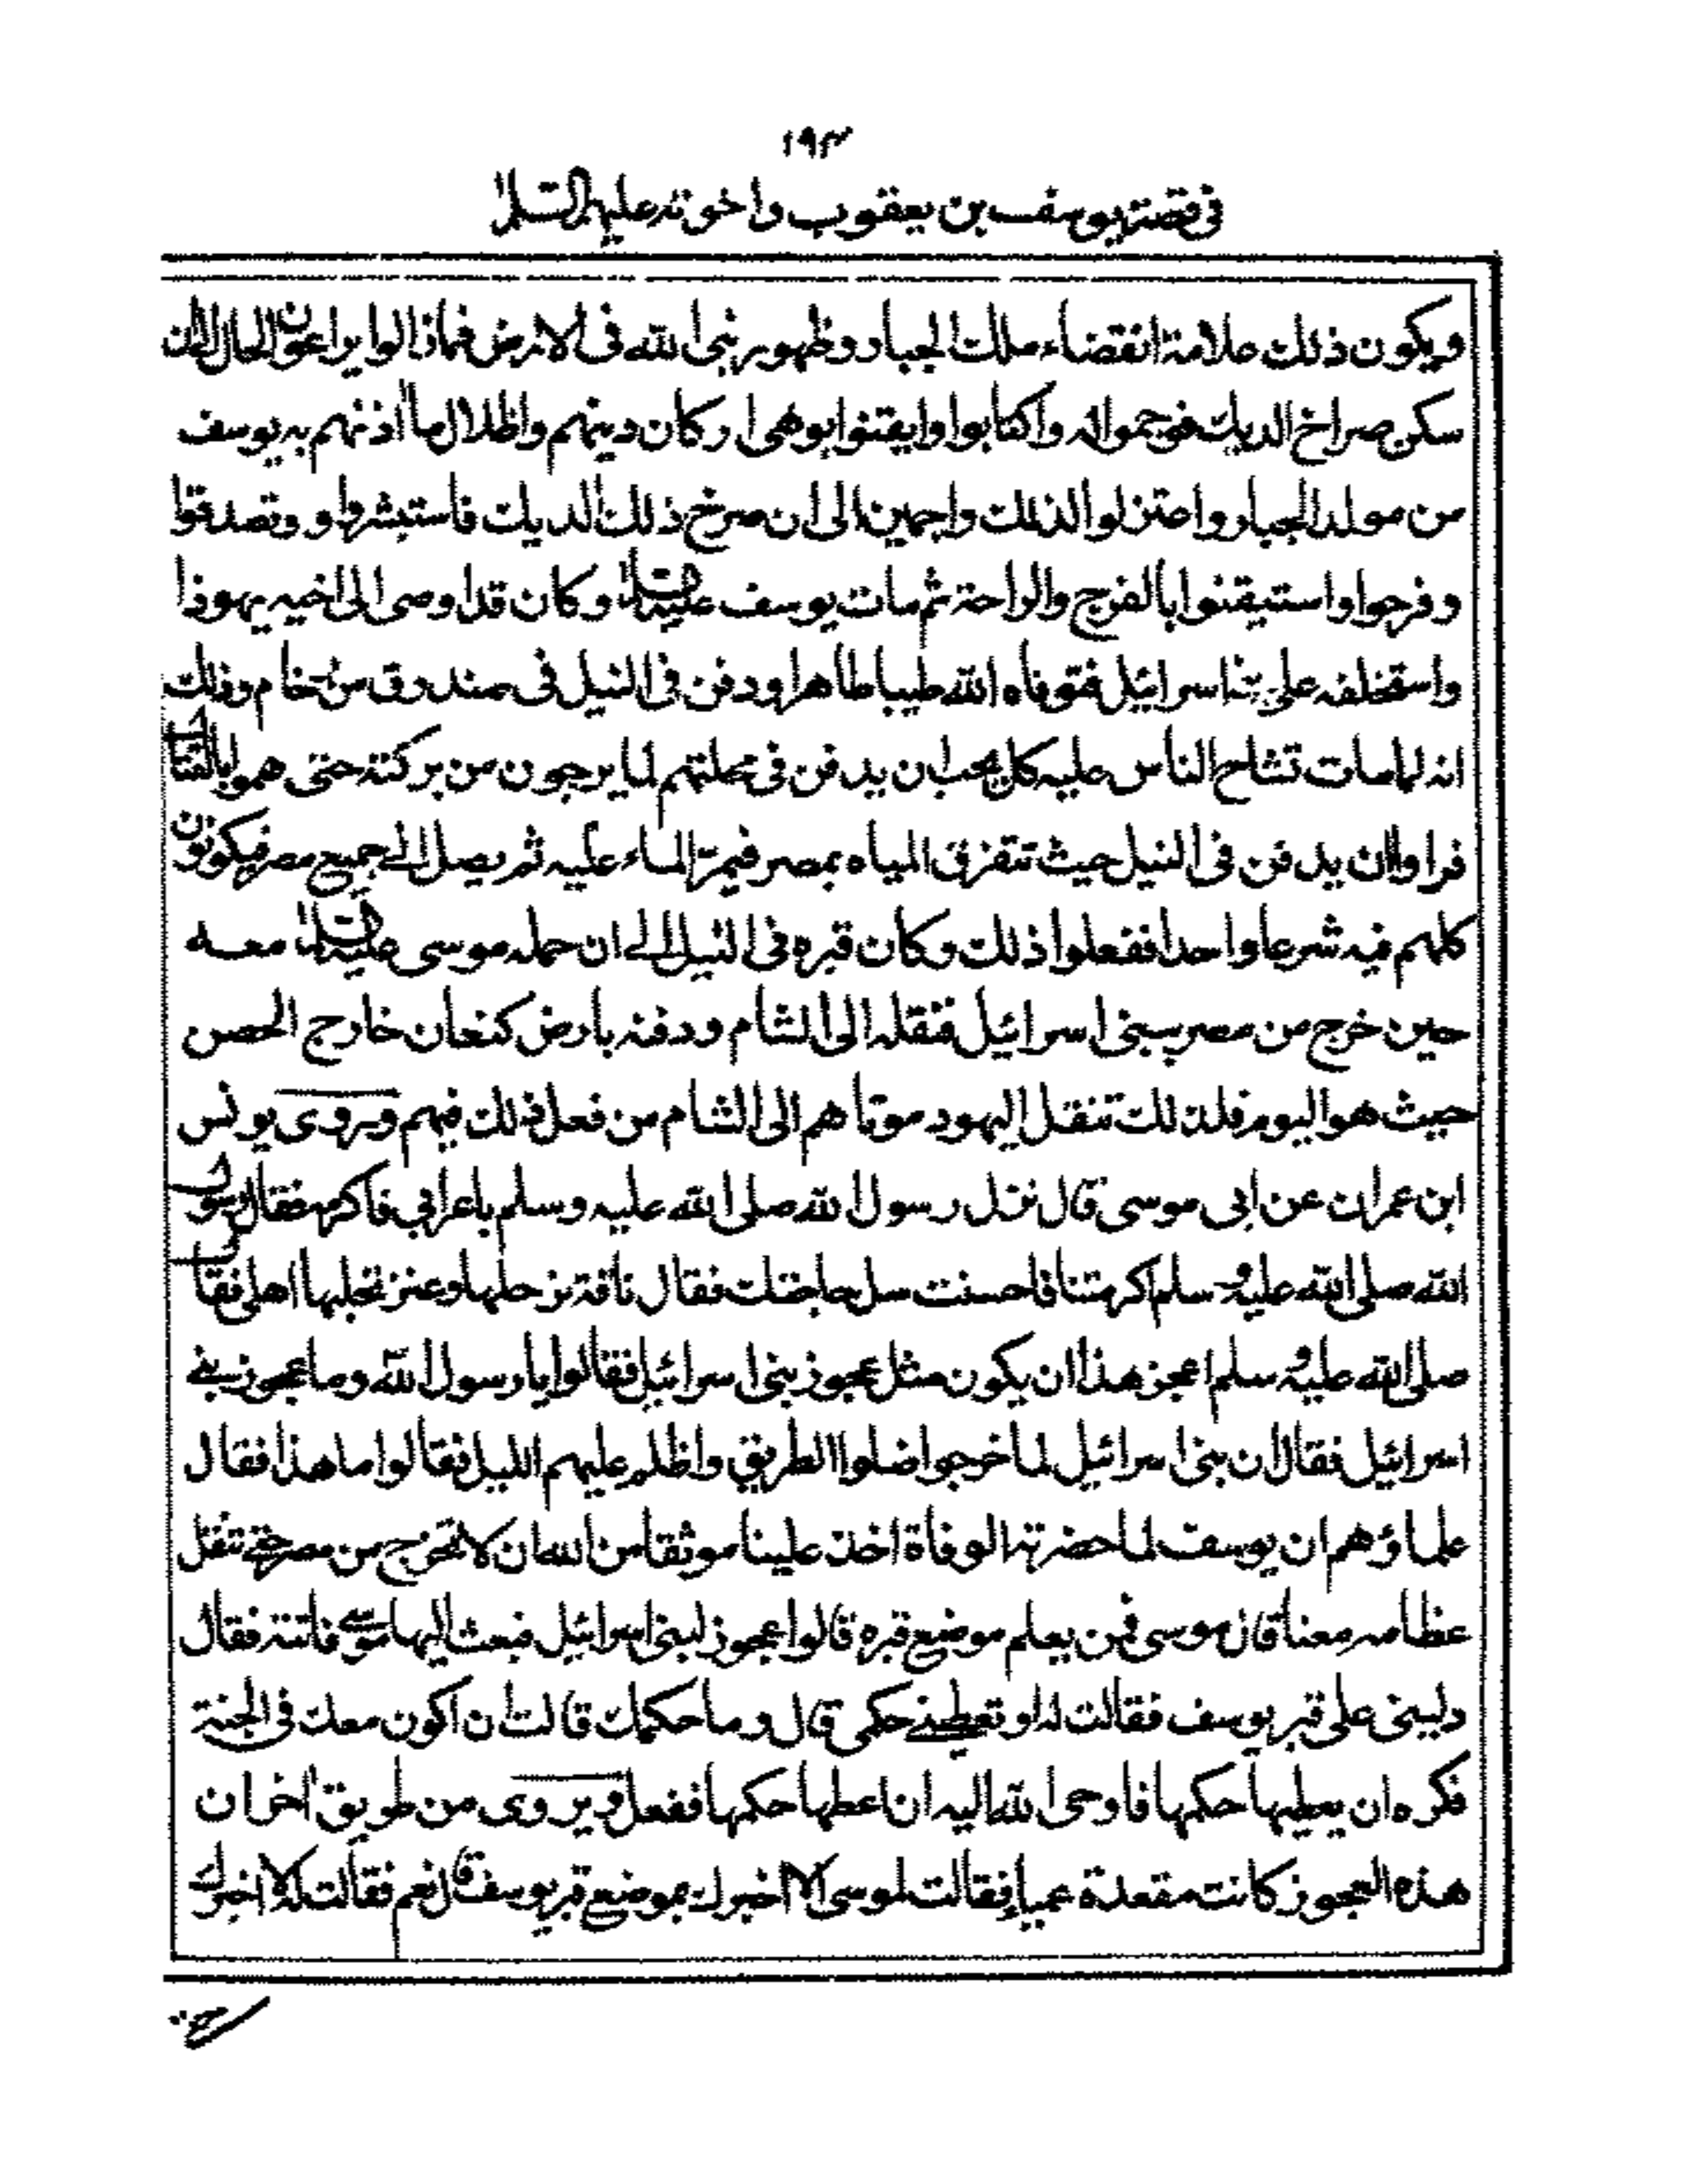 ١٩٣
فى قصة يوسف بن يعقوب واخوته عليهم السلام
ويكون ذلك علامة انقضاء ملك الجبار وظهور نبى الله فى الارض فماذالوا يراعون الحال الى ان
سكن صراخ الديك فوجموا له واكتابوا وايقنوا بوهى اركان دينهم واظلال ما اذنهم به يوسف
من مولد الجبار واعتزلوا لذلك واجمين الى ان صرخ ذلك الديك فاستبشروا و وتصدقوا
وفرحوا واستيقنوا بالفرج والراحة ثم مات يوسف عليه السلام وكان قد اوصى الى اخيه يهوذا
واستخلفه على بنى اسرائيل فتوفاه الله طيبا طاهرا ودفن فى النيل فى صندوق من رخام وذلك
انه لما مات تشاح الناس عليه كل يحب ان يدفن فى محلتهم لما يرجون من بركته حتى هموا بالقتال
فراوا ان يدفن فى النيل حيث تتفرق المياه بمصر فيمر الماء عليه ثم يصل الى جميع مصر فيكونون
كلهم فيه شرعا واحدا ففعلوا ذلك وكان قبره فى النيل الى ان حمله موسى عليه السلام معه
حين خرج من مصر ببنى اسرائيل فنقله الى الشام ودفنه بارض كنعان خارج الحصن
حيث هو اليوم فلذلك تنقل اليهود موتاهم الى الشام من فعل ذلك فيهم وروى يونس
ابن عمران عن ابى موسى قال نزل رسول الله صلى الله عليه وسلم باعرابي فاكرمه فقال رسول
الله صلى الله عليه وسلم اكرمتنا فاحسنت سل حاجتك فقال ناقة نرحلها وعنز نحلبها اهلى فقال
صلى الله عليه وسلم اعجز هذا ان يكون مثل عجوز بنى اسرائيل فقالوا يا رسول الله وما عجوز بنى
اسرائيل فقال ان بنى اسرائيل لما خرجوا ضلوا الطريق واظلم عليهم الليل فقالوا ما هذا فقال
علماؤهم ان يوسف لما حضرته الوفاة اخذ علينا موثقا من الله ان لا نخرج من مصر حتى ننقل
عظامه معنا قال موسى فمن يعلم موضع قبره قالوا عجوز لبنى اسرائيل فبعث اليها موسى فاتته فقال
دليني على قبر يوسف فقالت له او تعطيني حكمى قال وما حكمك قالت ان اكون معك فى الجنة
فكره ان يعطيها حكمها فاوحى الله اليه ان اعطها حكمها ففعل ويروى من طويق اخر ان
هذه العجوز كانت مقعدة عمياء فقالت لموسى الا اخبرك بموضع قبر يوسف قال نعم فقالت لا اخبرك